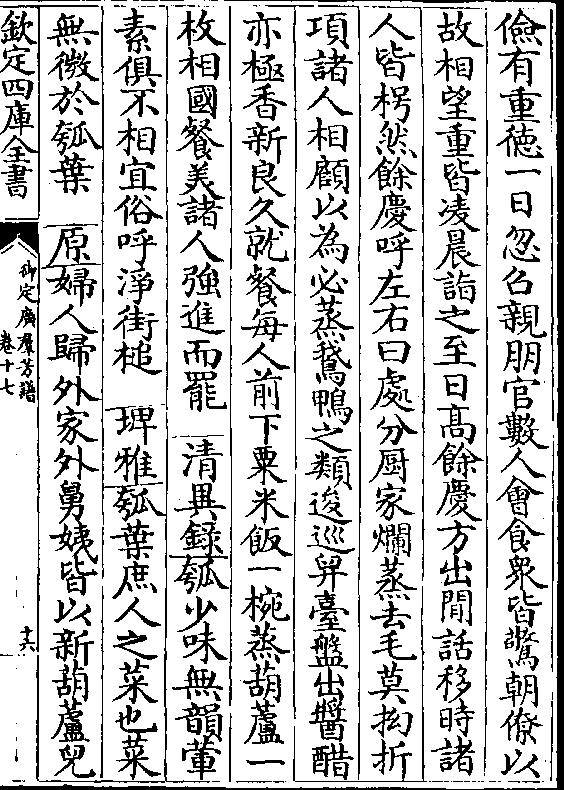 儉有重徳一日忽召親朋官數人會食衆皆驚朝僚以
故相望重皆凌晨詣之至日高餘慶方出閒話移時諸
人皆枵然餘慶呼左右曰處分厨家爛蒸去毛莫拗折
項諸人相顧以為必蒸鵝鴨之類逡巡舁臺盤出醬醋
亦極香新良久就餐每人前下粟米飯一椀蒸葫蘆一
枚相國餐美諸人強進而罷　清異録瓠少味無韻葷
素俱不相宜俗呼淨街槌　埤雅瓠葉庶人之菜也菜
無微於瓠葉　原婦人歸外家外舅姨皆以新葫蘆兒
欽定四庫全書　御定廣羣芳譜　卷十七　十六